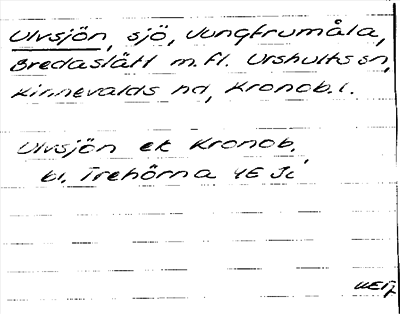 Ulvsjön, sjö, Jungfrumåla,
Bredaslätt m.fl. Urshults sn,
Kinnevalds hd, Kronob. l.
Ulvsjön ek Kronob.
bl. Trehörna 4E Jc